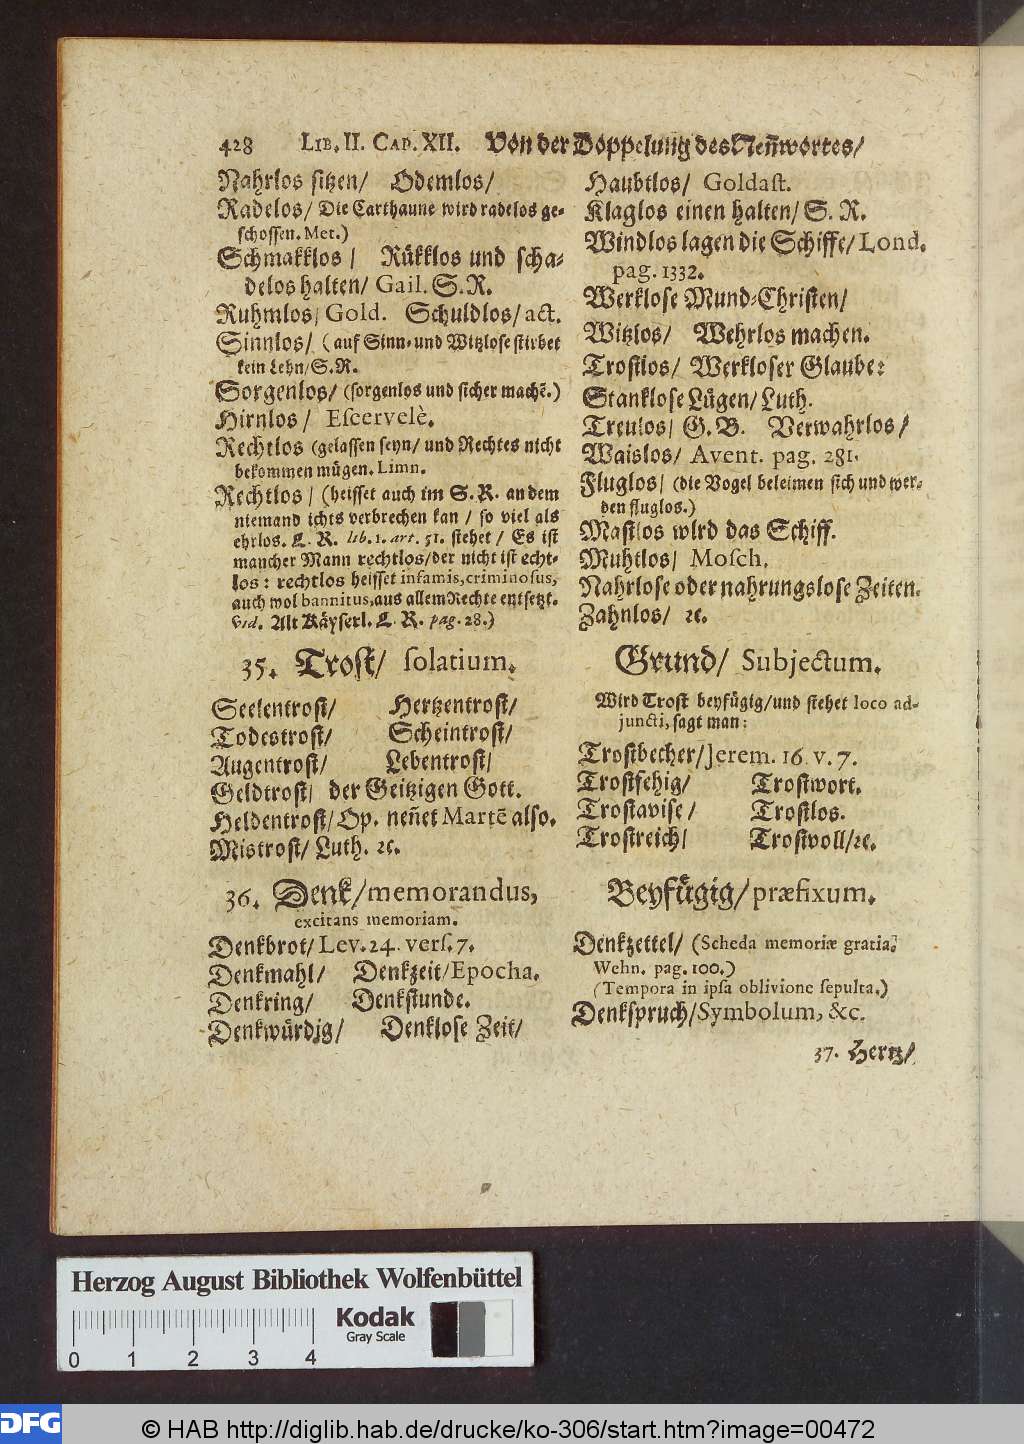 428 LIB. II. CAP. XII. Von der Doppelung des Neñwortes/
Nahrlos sitzen/ Odemlos/
Radelos/ Die Carthaune wird radelos ge-
schossen. Met.)
Schmakklos / Rükklos und scha-
delos halten/ Gail. S. R.
Ruhmlos/ Gold. Schuldlos/ act.
Sinnlos/ (auf Sinn- und Witzlose stirbet
kein Lehn/S.R.
Sorgenlos/ (sorgenlos und sicher machẽ.)
Hirnlos/ Escervelè.
Rechtlos (gelassen seyn/ und Rechtes nicht
bekommen mügen. Limn.
Rechtlos / (heisset auch im S. R. an dem
niemand ichts verbrechen kan / so viel als
ehrlos. L. R. lib. 1. art. 51. stehet / Es ist
mancher Mann rechtlos/der nicht ist echt-
los: rechtlos heisset infamis, criminosus,
auch wol bannitus, aus allem Rechte entsetzt.
Vid. Alt Käyserl. L. R. pag. 28.)
35. Trost/ solatium.
Seelentrost/ Hertzentrost/
Todestrost/ Scheintrost/
Augentrost/ Lebentrost/
Geldtrost/ der Geitzigen Gott.
Heldentrost/ Op. neñet Martẽ also.
Mistrost/ Luth. ꝛc.
36. Denk/ memorandus,
excitans memoriam.
Denkbrot/ Lev. 24. vers. 7.
Denkmahl/ Denkzeit/ Epocha.
Denkring/ Denkstunde.
Denkwürdig/ Denklose Zeit/
Haubtlos/ Goldast.
Klaglos einen halten/ S. R.
Windlos lagen die Schiffe/ Lond.
pag. 1332.
Werklose Mund-Christen/
Witzlos/ Wehrlos machen.
Trostlos/ Werkloser Glaube:
Stanklose Lügen/ Luth.
Treulos/ G. B. Verwahrlos/
Waislos/ Avent. pag. 281.
Fluglos/ (die Vogel beleimen sich und wer-
den fluglos.)
Mastlos wird das Schiff.
Muhtlos/ Mosch.
Nahrlose oder nahrungslose Zeiten.
Zahnlos/ ꝛc.
Grund/ Subjectum.
Wird Trost beyfügig/ und stehet loco ad-
juncti, sagt man:
Trostbecher/ Jerem. 16. v. 7.
Trostfehig/ Trostwort.
Trostavise / Trostlos.
Trostreich/ Trostvoll/ꝛc.
Beyfügig/ præfixum.
Denkzettel/ (Scheda memoriæ gratia.
Wehn. pag. 100.)
(Tempora in ipsa oblivione sepulta.)
Denkspruch/ Symbolum, &c.
37. Hertz/
Herzog August Bibliothek Wolfenbüttel
0 1 2 3 4
Kodak
Gray Scale
DFG © HAB http://diglib.hab.de/drucke/ko-306/start.htm?image=00472